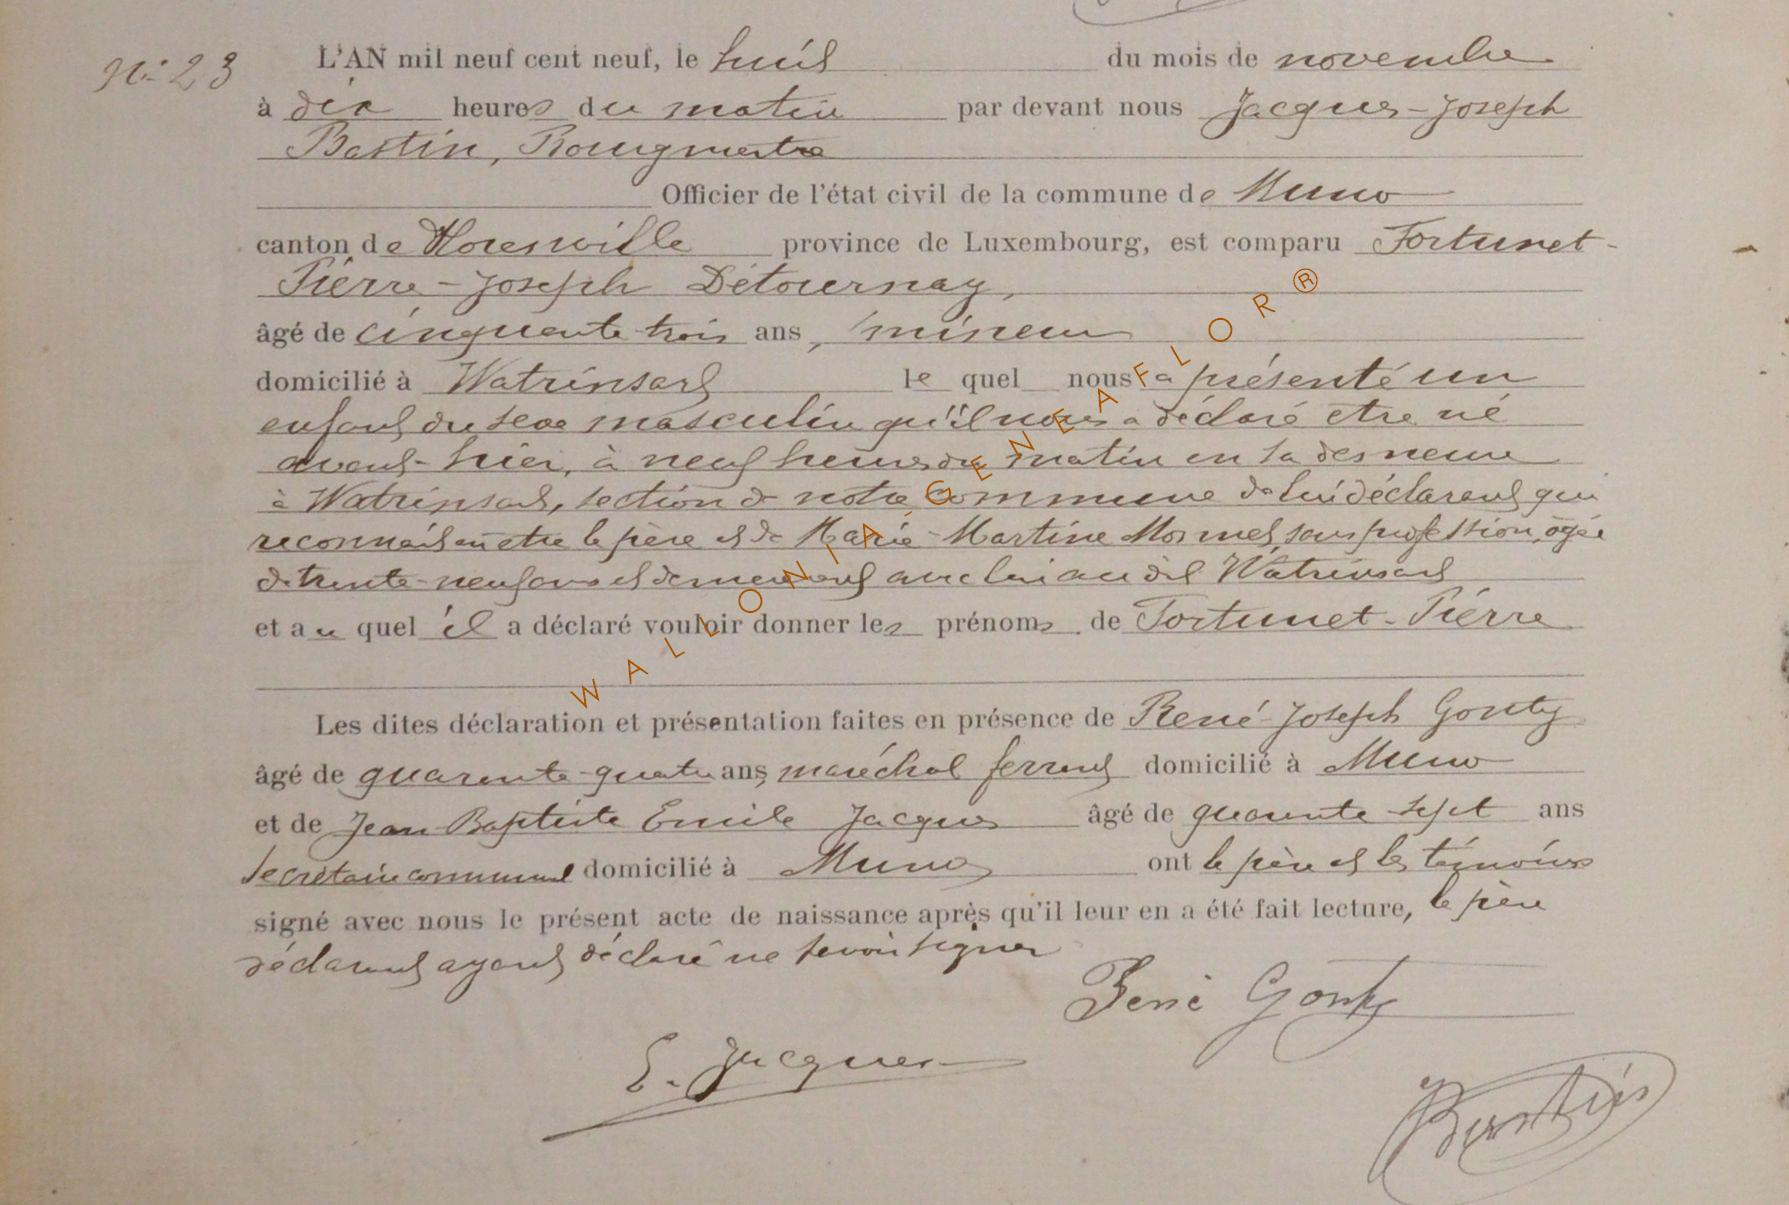 N° 23
L'AN mil neuf cent neuf, le huit du mois de novembre
à dix heures du matin par devant nous Jacques-Joseph
Bastin, Bourgmestre
Officier de l'état civil de la commune de Muno
canton de Florenville province de Luxembourg, est comparu Fortunet-
Pierre-Joseph Détournay,
âgé de cinquante-trois ans, mineur
domicilié à Watrinsart le quel nous a présenté un
enfant du sexe masculin qu'il nous a déclaré être né
avant-hier, à neuf heures du matin en sa demeure
à Watrinsart, section de notre commune de lui déclarant qui
reconnait en être le père et de Marie-Martine Mormet, sans profession, âgée
de trente-neuf ans et demeurant avec lui au dit Watrinsart
et au quel il a déclaré vouloir donner les prénoms de Fortunet-Pierre
Les dites déclaration et présentation faites en présence de René-Joseph Gouty
âgé de quarante-quatre ans, maréchal ferrant domicilié à Muno
et de Jean-Baptiste Emile Jacques âgé de quarante sept ans
secrétaire communal domicilié à Muno ont le père et les témoins
signé avec nous le présent acte de naissance après qu'il leur en a été fait lecture, le père
déclarant ayant déclaré ne savoir signer
René Gouty
E. Jacques
Bastin
WALLONIA.GENEAFLOR®